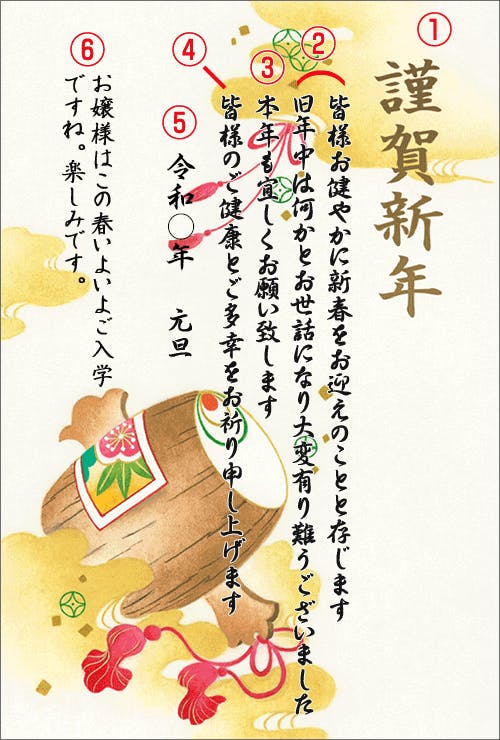 ①
謹賀新年
②
皆様お健やかに新春をお迎えのことと存じます
旧年中は何かとお世話になり大変有り難うございました
③
本年も宜しくお願い致します
④
皆様のご健康とご多幸をお祈り申し上げます
⑤
令和○年　元旦
⑥
お嬢様はこの春いよいよご入学
ですね。楽しみです。